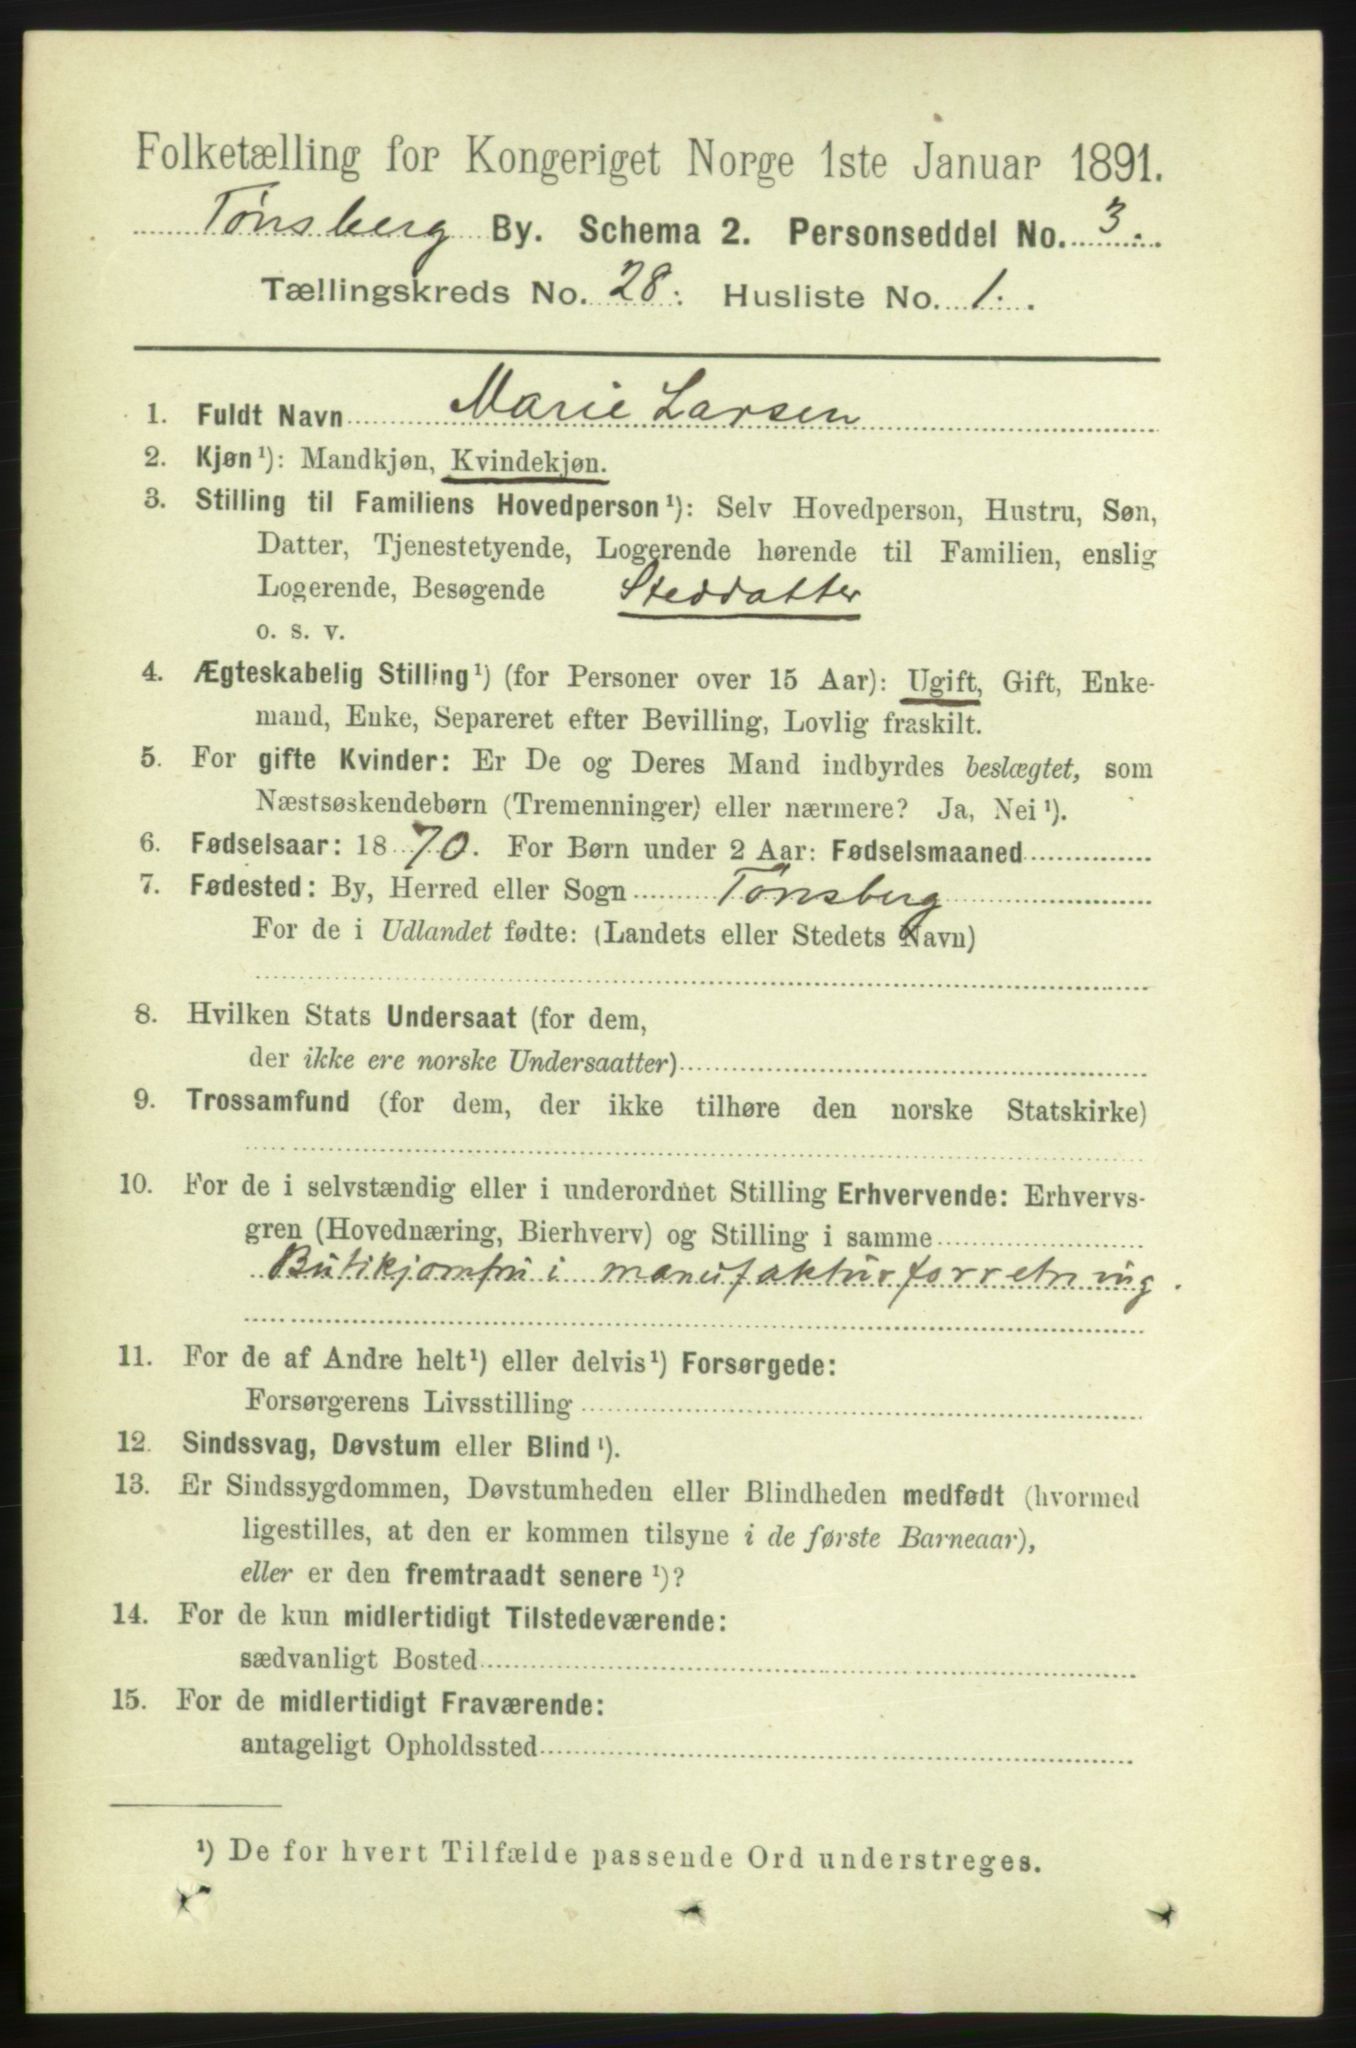 Folketælling for Kongeriget Norge 1ste Januar 1891.
Tønsberg By. Schema 2. Personseddel No. 3.
Tællingskreds No. 28. Husliste No. 1.
1. Fuldt Navn Marie Larsen
2. Kjøn ¹): Mandkjøn, Kvindekjøn.
3. Stilling til Familiens Hovedperson ¹): Selv Hovedperson, Hustru, Søn,
Datter, Tjenestetyende, Logerende hørende til Familien, enslig
Logerende, Besøgende Steddatter
o. s. v.
4. Ægteskabelig Stilling ¹) (for Personer over 15 Aar): Ugift, Gift, Enke-
mand, Enke, Separeret efter Bevilling, Lovlig fraskilt.
5. For gifte Kvinder: Er De og Deres Mand indbyrdes beslægtet, som
Næstsøskendebørn (Tremenninger) eller nærmere? Ja, Nei ¹).
6. Fødselsaar: 1870. For Børn under 2 Aar: Fødselsmaaned
7. Fødested: By, Herred eller Sogn Tønsberg
For de i Udlandet fødte: (Landets eller Stedets Navn)
8. Hvilken Stats Undersaat (for dem,
der ikke ere norske Undersaatter)
9. Trossamfund (for dem, der ikke tilhøre den norske Statskirke)
10. For de i selvstændig eller i underordnet Stilling Erhvervende: Erhvervs-
gren (Hovednæring, Bierhverv) og Stilling i samme
Butikjomfru i manufakturforretning.
11. For de af Andre helt ¹) eller delvis ¹) Forsørgede:
Forsørgerens Livsstilling
12. Sindssvag, Døvstum eller Blind ¹).
13. Er Sindssygdommen, Døvstumheden eller Blindheden medfødt (hvormed
ligestilles, at den er kommen tilsyne i de første Barneaar),
eller er den fremtraadt senere ¹)?
14. For de kun midlertidigt Tilstedeværende:
sædvanligt Bosted
15. For de midlertidigt Fraværende:
antageligt Opholdssted
¹) De for hvert Tilfælde passende Ord understreges.